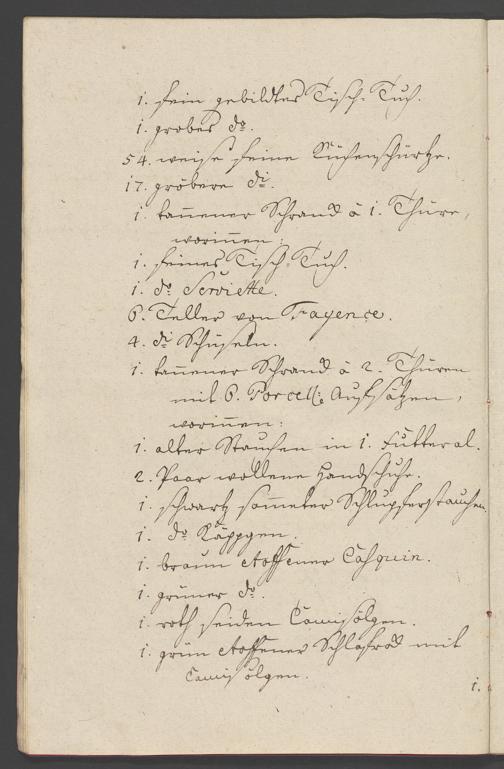 1. fein gebildtes Tisch-Tuch.
1. grobes do.
54. weise feine Küchenschürtze.
17. gröbere di.
1. tannener Schranck à 1. Thüre,
worinnen:
1. feines Tisch-Tuch.
1. do Serviette.
6. Teller von Fayence.
4. di Schüseln.
1. tannener Schranck à 2. Thüren
mit 6. Porcell: Auffsätzen,
worinnen:
1. alter Stauchen in 1. Futteral.
2. Paar wollene Handschuhe.
1. schwartz sammeter Schlupferstauchen.
1. do Käppgen.
1. braun stoffener Casquin.
1. grüner do.
1. roth seiden Camisölgen.
1. grün stoffener Schlafrock mit
Camisölgen.
1.